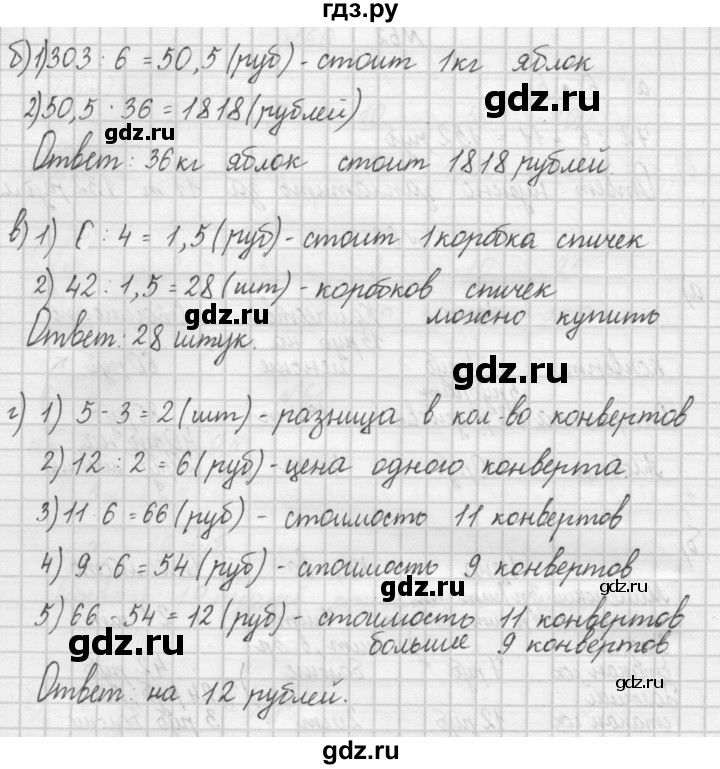 гдз.ру
б) 1) 303 : 6 = 50,5 (руб) - стоит 1 кг яблок
2) 50,5 · 36 = 1818 (рублей)
gdz.ru gdz.ru
Ответ: 36 кг яблок стоит 1818 рублей.
в) 1) 6 : 4 = 1,5 (руб) - стоит 1 коробка спичек
2) 42 : 1,5 = 28 (шт) - коробков спичек
можно купить
gdz.ru
Ответ: 28 штук.
gdz.ru
г) 1) 5 - 3 = 2 (шт) - разница в кол-во конвертов
2) 12 : 2 = 6 (руб) - цена одного конверта.
3) 11 · 6 = 66 (руб) - стоимость 11 конвертов
4) 9 · 6 = 54 (руб) - стоимость 9 конвертов
gdz.ru gdz.ru
5) 66 - 54 = 12 (руб) - стоимость 11 конвертов
больше 9 конвертов
gdz.ru
Ответ: на 12 рублей.
gdz.ru
gdz.ru
gdz.ru